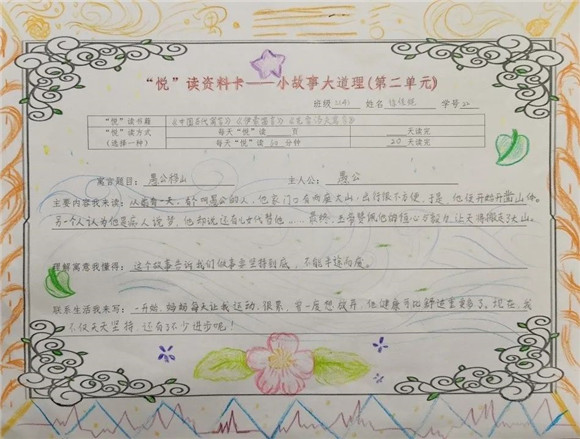 “悦”读资料卡——小故事大道理(第二单元)
班级 姓名 学号
“悦”读书籍 《中国古代寓言》《伊索寓言》《克雷洛夫寓言》
“悦”读方式 每天“悦”读 页 天读完
(选择一种) 每天“悦”读 30 分钟 20 天读完
寓言题目: 愚公移山 主人公: 愚公
主要内容我来读: 从前有一天,有个叫愚公的人,他家门口有两座大山,出行很不方便,于是,他便开始开凿山体。
另一个人认为他是痴人说梦,他却说还有儿女代替他…… 最终,玉帝赞佩他的恒心与毅力,让天将搬走了大山。
理解寓意我懂得: 这个故事告诉我们做事要坚持到底,不能半途而废。
联系生活我来写: 一开始,妈妈每天让我运动,很累,有一度想放弃,但健康可比舒适重要多了。现在,我
不仅天天坚持,还有了不少进步呢!